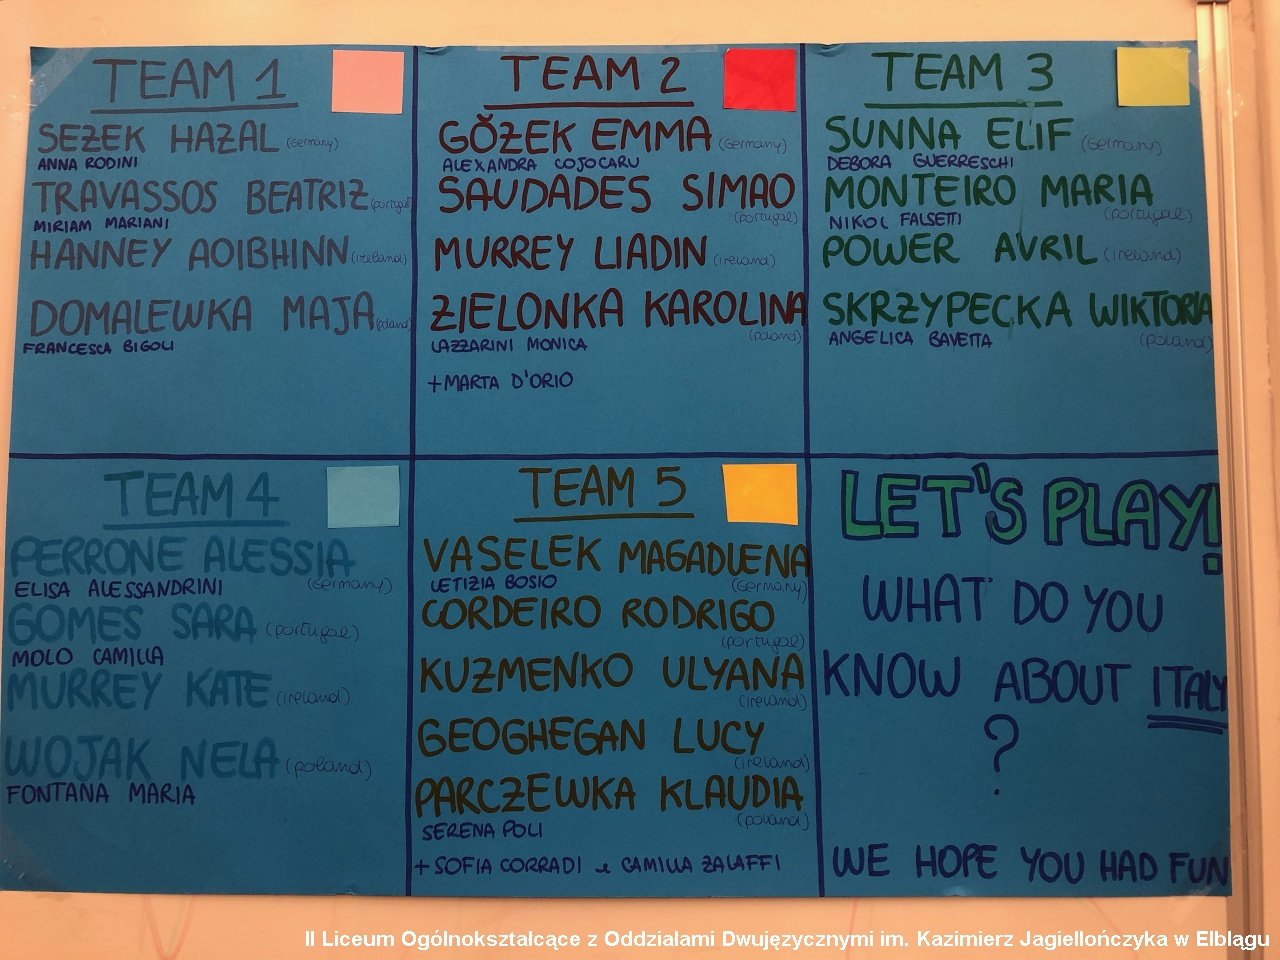 TEAM 1
SEZEK HAZAL (Germany)
ANNA RODINI
TRAVASSOS BEATRIZ (portugal)
MIRIAM MARIANI
HANNEY AOIBHINN (ireland)
DOMALEWKA MAJA (poland)
FRANCESCA BIGOLI
TEAM 2
GŎZEK EMMA (Germany)
ALEXANDRA COJOCARU
SAUDADES SIMAO
(portugal)
MURREY LIADIN (ireland)
ZIELONKA KAROLINA
(poland)
LAZZARINI MONICA
+MARTA D'ORIO
TEAM 3
SUNNA ELIF (Germany)
DEBORA GUERRESCHI
MONTEIRO MARIA
(portugal)
NIKOL FALSETTI
POWER AVRIL (ireland)
SKRZYPECKA WIKTORIA
(poland)
ANGELICA BAVETTA
TEAM 4
PERRONE ALESSIA
(Germany)
ELISA ALESSANDRINI
GOMES SARA (portugal)
MOLO CAMILLA
MURREY KATE (ireland)
WOJAK NELA (poland)
FONTANA MARIA
TEAM 5
VASELEK MAGADLENA
(Germany)
LETIZIA BOSIO
CORDEIRO RODRIGO
(portugal)
KUZMENKO ULYANA
(ireland)
GEOGHEGAN LUCY
(ireland)
PARCZEWKA KLAUDIA
(poland)
SERENA POLI
+ SOFIA CORRADI e CAMILLA ZALAFFI
LET'S PLAY!
WHAT DO YOU
KNOW ABOUT ITALY
?
WE HOPE YOU HAD FUN
II Liceum Ogólnokształcące z Oddziałami Dwujęzycznymi im. Kazimierz Jagiellończyka w Elblągu